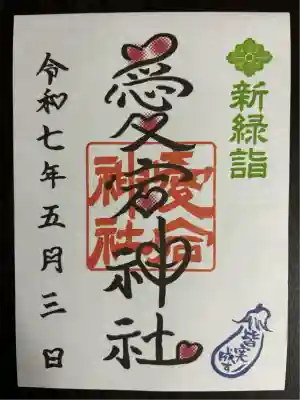 新緑詣
愛宕神社
愛宕
神社
令和七年五月三日
皆笑
成す